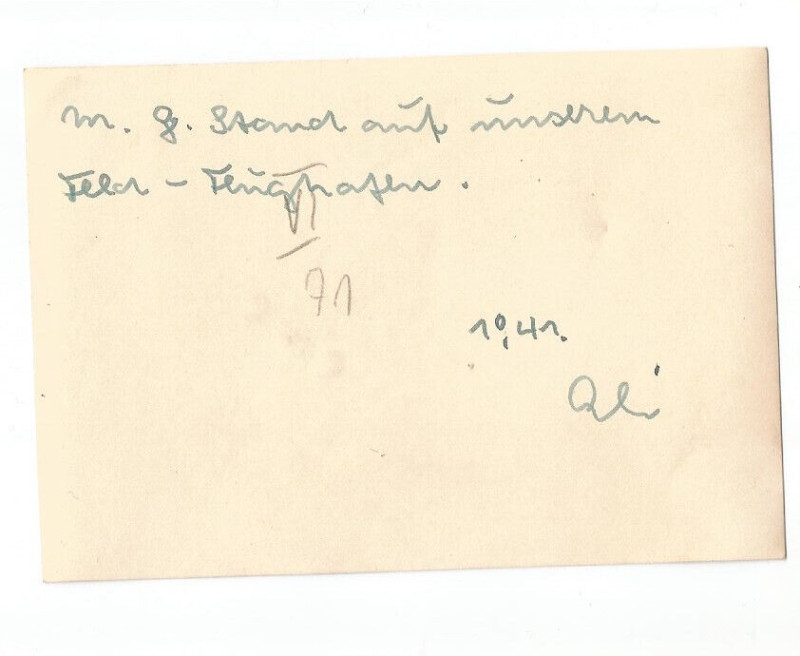 M. G. Stand auf unserem
Feld – Flughafen.
VI
71
10.41.